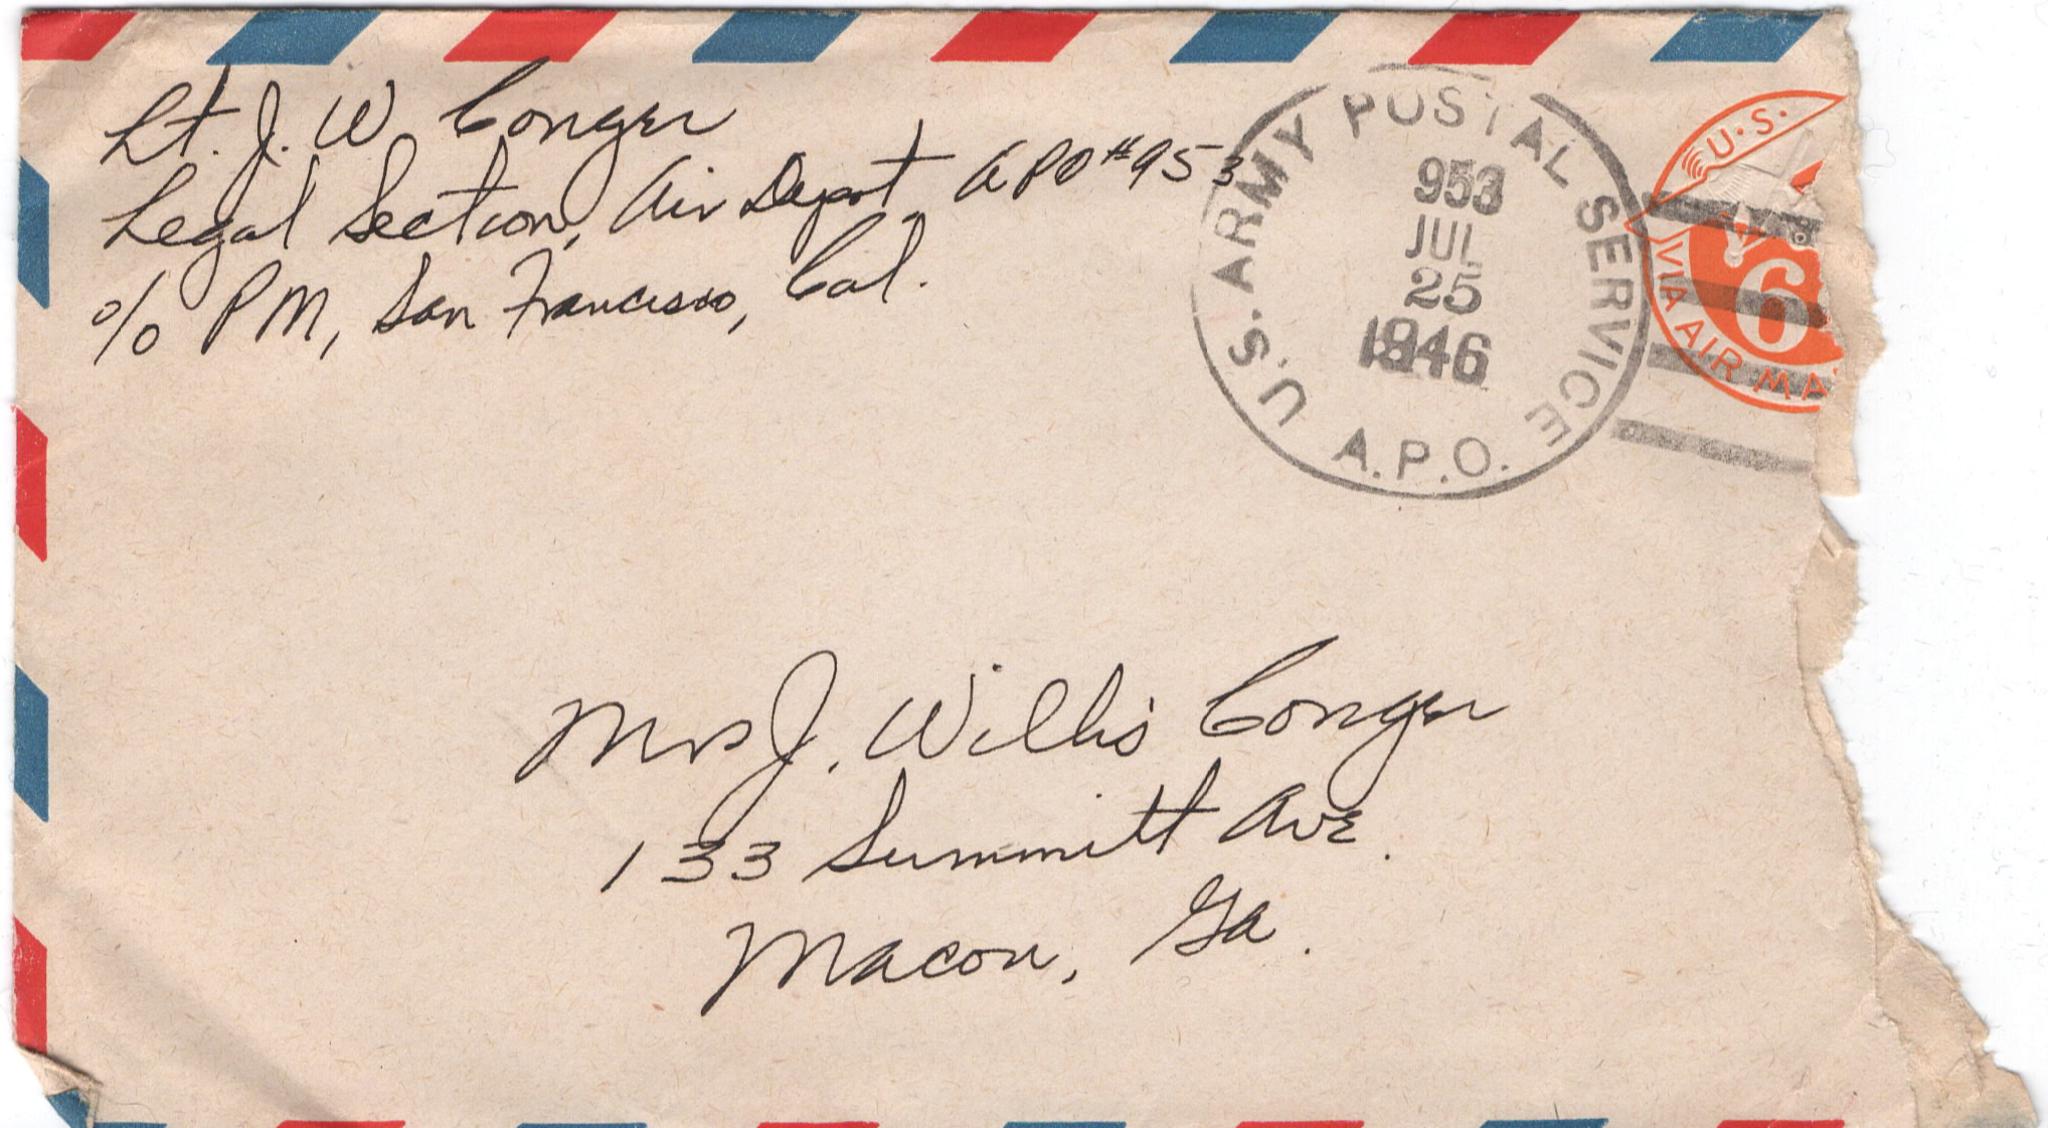 Lt. J. W Conger
Legal Section, Air Depot, APO #953
% PM, San Francisco, Cal.
U.S. ARMY POSTAL SERVICE
953
JUL
25
1946
A.P.O.
U.S.
6
VIA AIR MA
Mrs J. Willis Conger
133 Summitt Ave.
Macon, Ga.